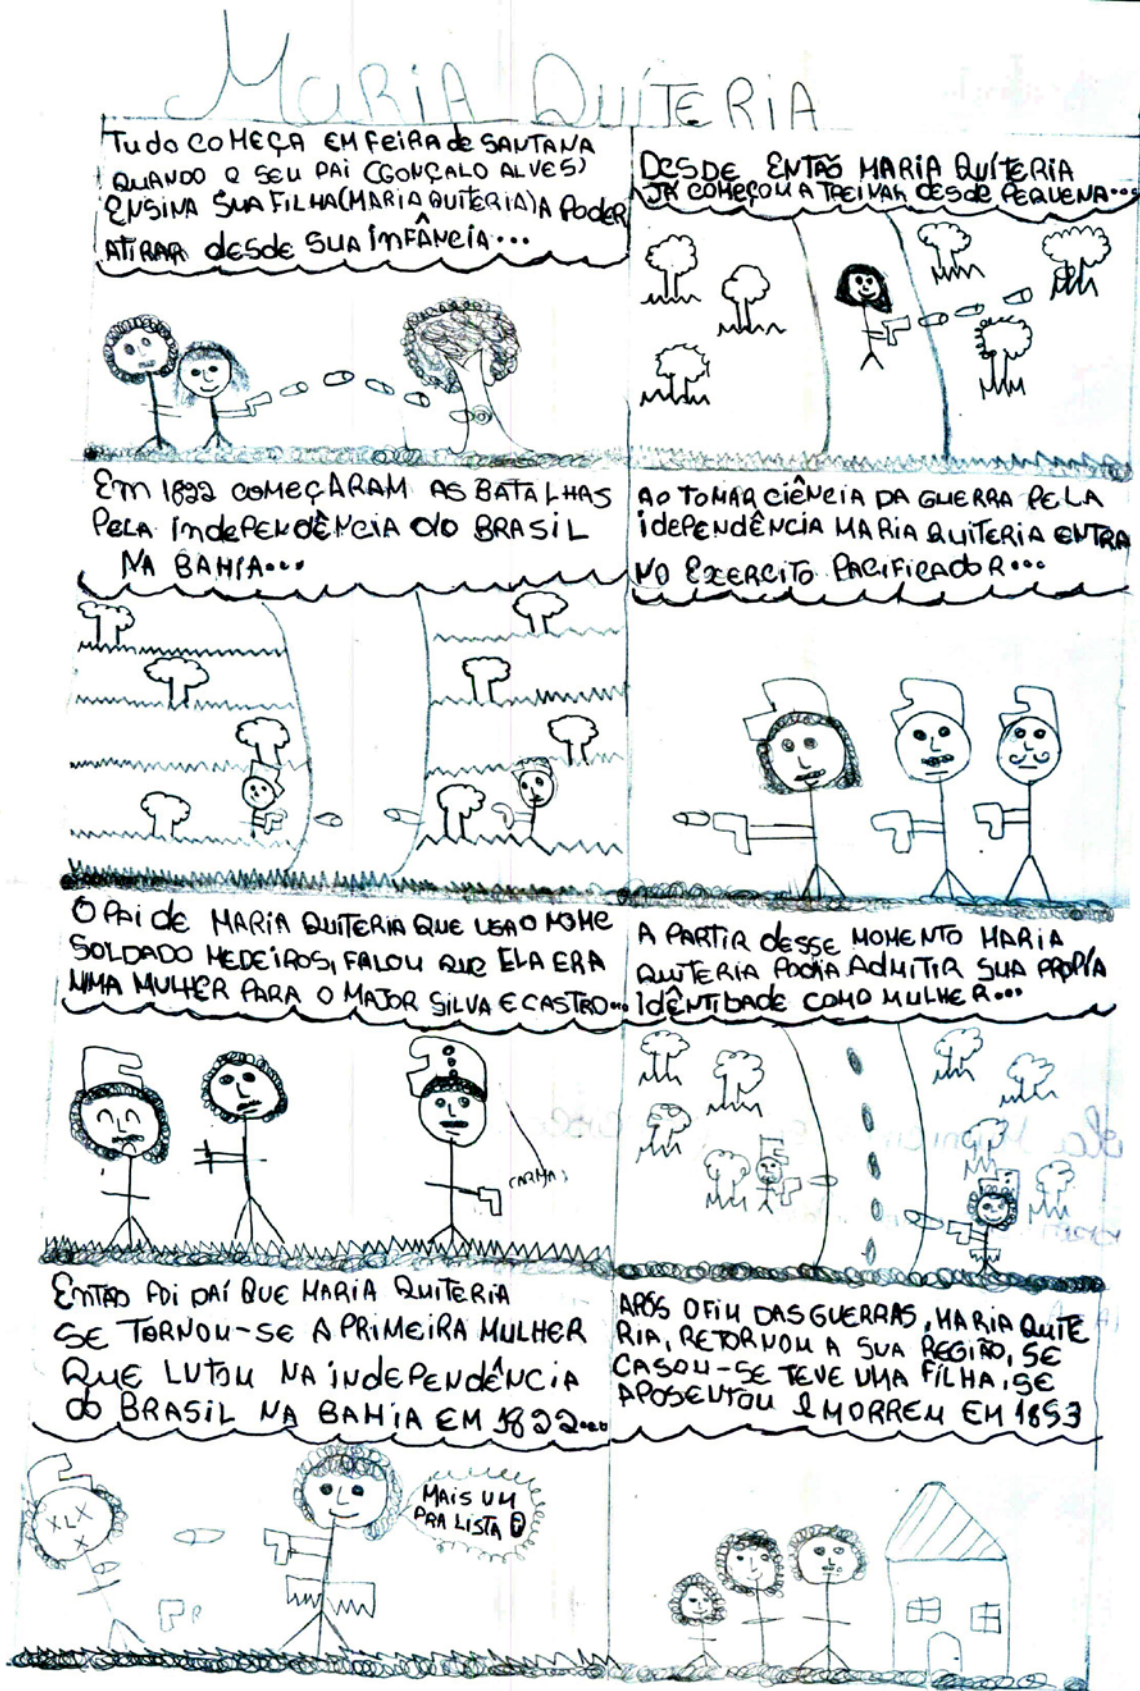 MARIA QUITERIA
Tudo COMEÇA EM FEIRA de SANTANA
QUANDO O SEU PAI (GONÇALO ALVES)
ENSINA SUA FILHA(MARIA QUITERIA)A PODER
ATIRAR desde SUA INFÂNCIA...
DESDE ENTÃO MARIA QUITERIA
JÁ COMEÇOU A TREINAR desde PEQUENA...
EM 1822 COMEÇARAM AS BATALHAS
PELA INdEPENdÊNCIA do BRASIL
NA BAHIA...
AO TOMAR CIÊNCIA DA GUERRA PELA
IdEPENdÊNCIA MARIA QUITERIA ENTRA
NO EXERCITO PACIFICADOR...
O PAI de MARIA QUITERIA QUE USA O NOME
SOLDADO MEDEIROS, FALOU QUE ELA ERA
UMA MULHER PARA O MAJOR SILVA E CASTRO...
A PARTIR desSE MOMENTO MARIA
QUITERIA PODIA ADMITIR SUA PROPÍA
IdÊNTIDADE COMO MULHER...
(ARMA)
ENTÃO FOI DAÍ QUE MARIA QUITERIA
SE TORNOU-SE A PRIMEIRA MULHER
QUE LUTOU NA INdEPENdÊNCIA
do BRASIL NA BAHIA EM 1822...
APÓS O FIM DAS GUERRAS, MARIA QUITE
RIA, RETORNOU A SUA REGIÃO, SE
CASOU-SE TEVE UMA FILHA, SE
APOSENTOU E MORREU EM 1853
MAIS UM
PRA LISTA